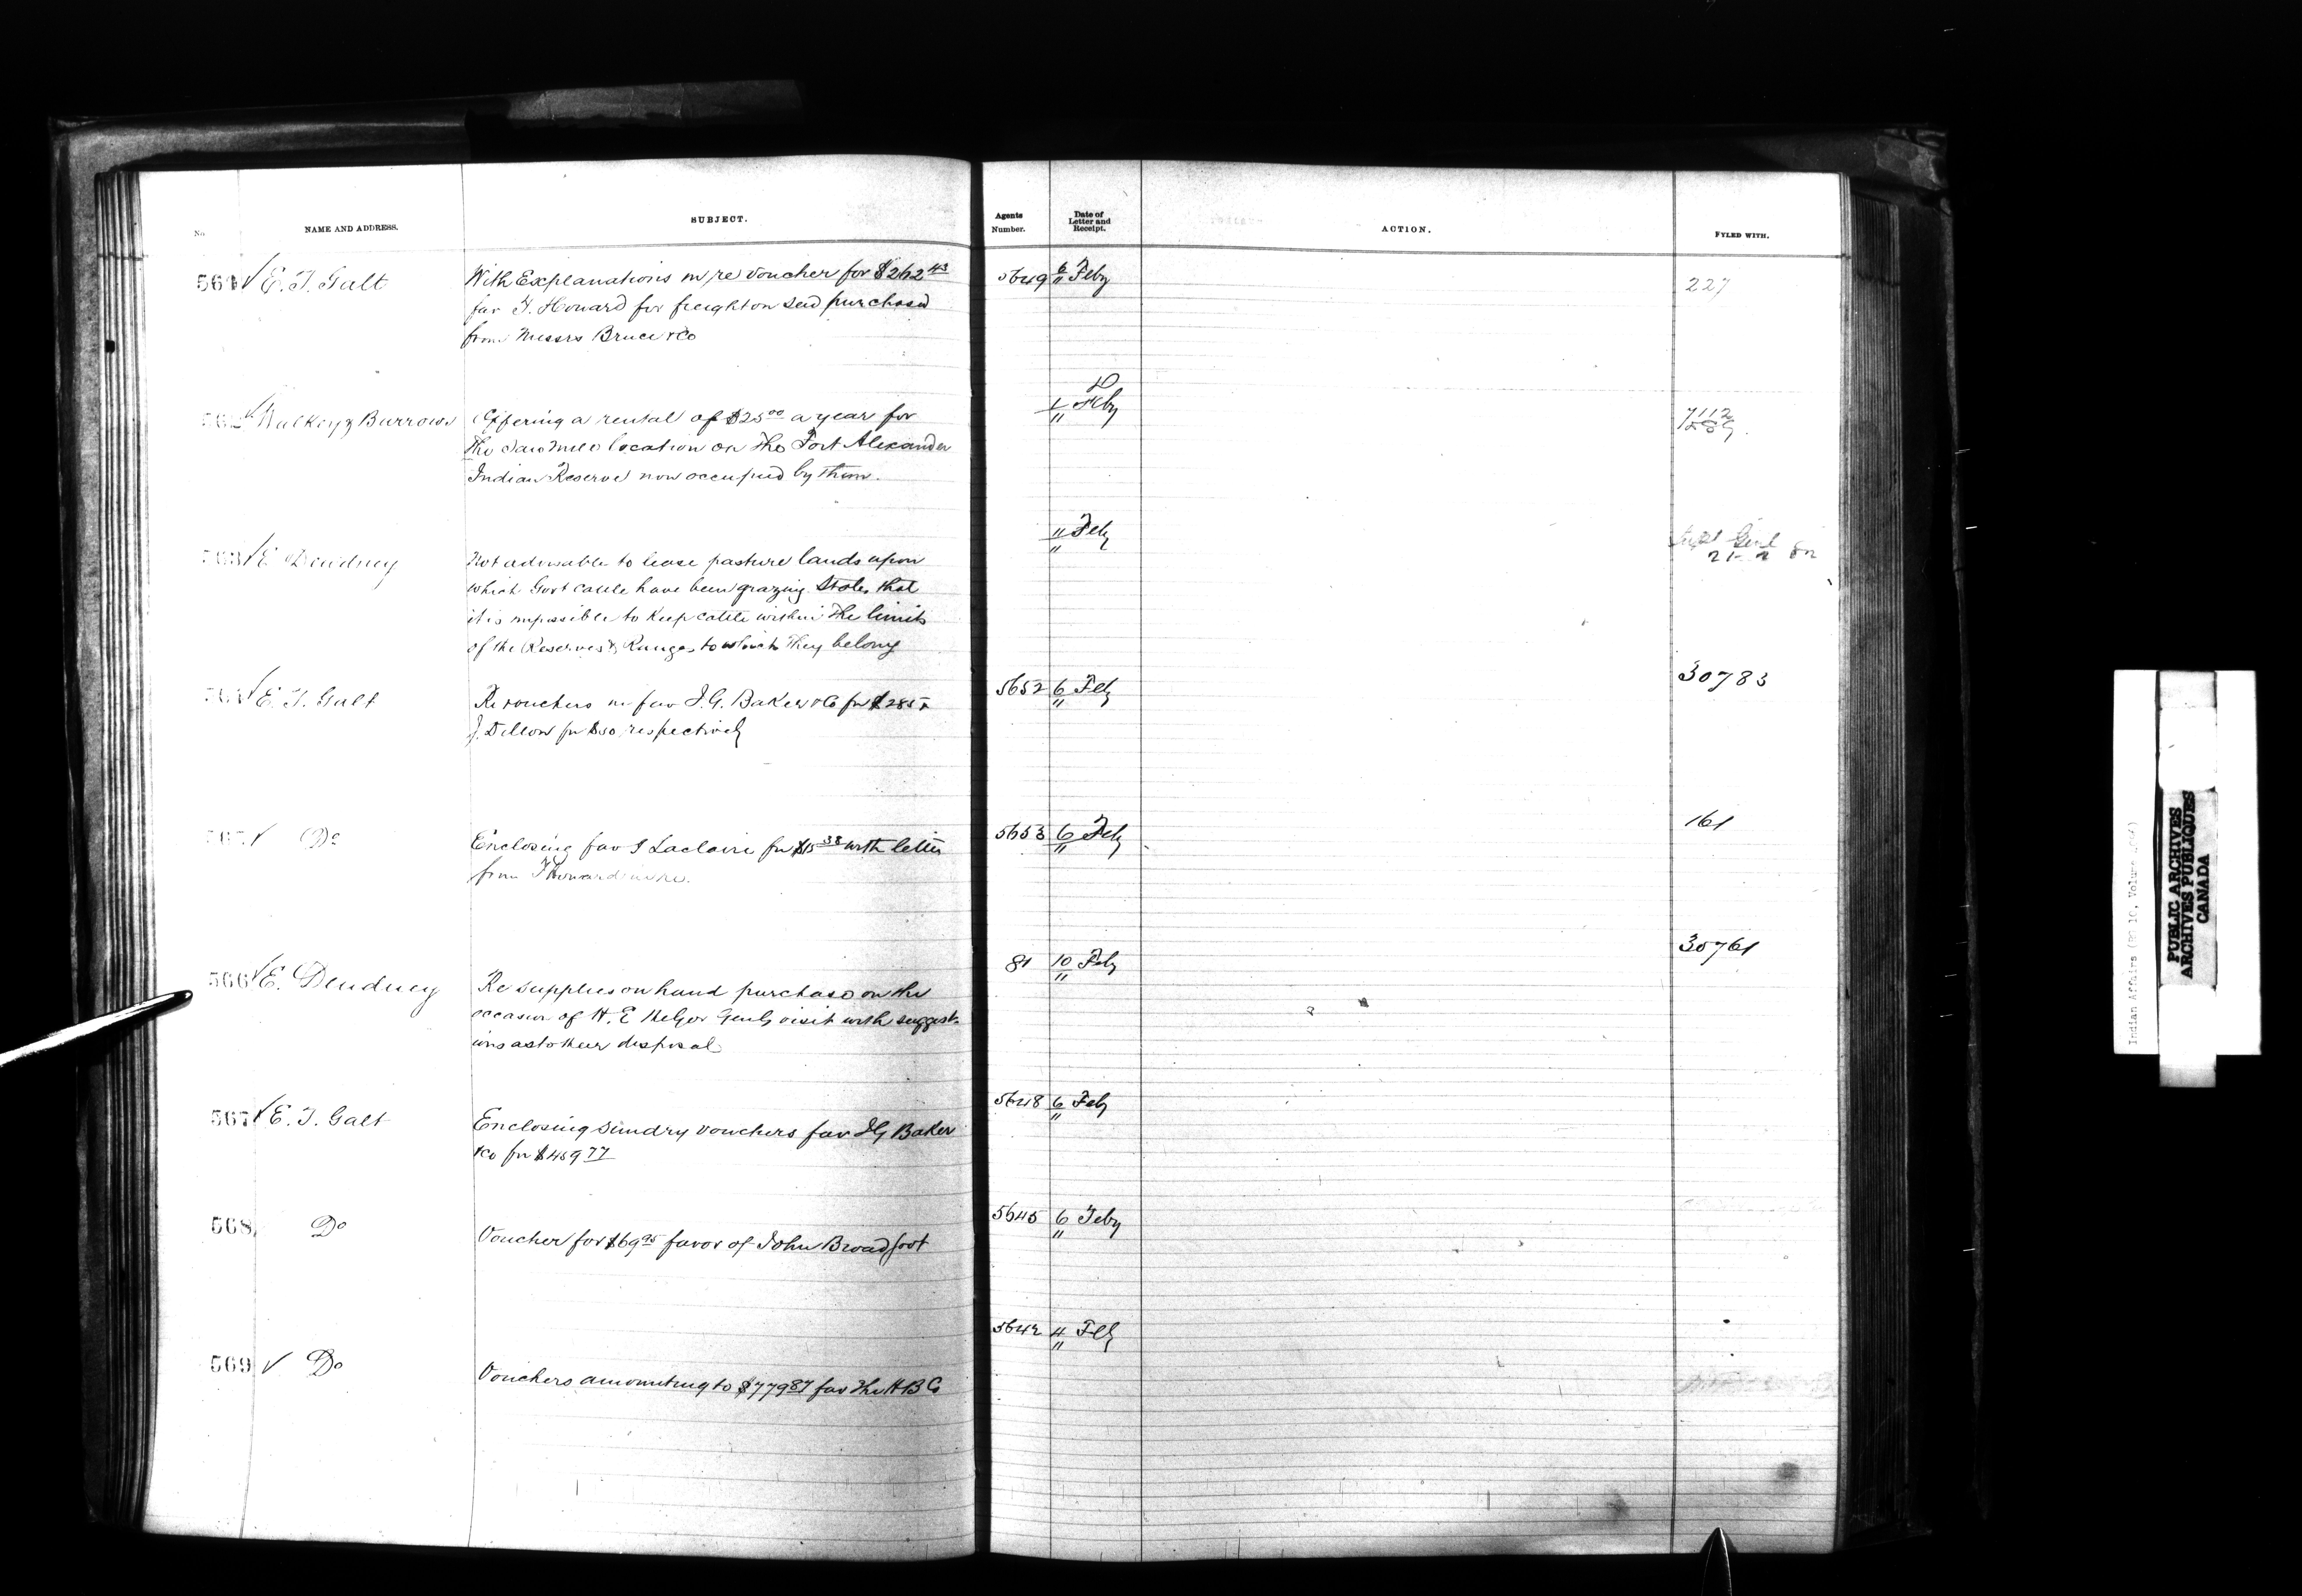 No. NAME AND ADDRESS. SUBJECT. Agents Number. Date of Letter and Receipt. ACTION. FYLED WITH.
561 ✓ E. T. Galt With Explanations in re voucher for $262 43 5649 6 Feby 227
fav T. Howard for freight on seed purchased "
from Messrs Bruce & Co
562 ✓ Walkey & Burrows Offering a rental of $25 00 a year for 1 Feby 7112
the Saw Mill location on the Fort Alexander "
Indian Reserve now occupied by them.
563 ✓ E Dewdney Not advisable to lease pasture lands upon " Feby
which Govt cattle have been grazing States that "
it is impossible to keep cattle within the limits
of the Reserves & Ranges to which they belong
564 ✓ E. T. Galt Re vouchers in fav I. G. Baker & Co for $285 & 5652 6 Feby 30783
J. Dillon for $50 respectively "
565 ✓ Do Enclosing fav I Laclaire for $15 38 with letter 5653 6 Feby 161
from T Howard in re. "
566 ✓ E. Dewdney Re supplies on hand purchased on the 81 10 Feby 30761
occasion of H. E the Gov Genls visit with suggest- "
ions as to their disposal
567 ✓ E. T. Galt Enclosing sundry vouchers fav I G Baker 5648 6 Feby
& Co for $459 77 "
568 Do Voucher for $69 95 favor of John Broadfoot 5645 6 Feby
"
569 ✓ Do Vouchers amounting to $779 87 fav The H B C 5642 4 Feby
"
PUBLIC ARCHIVES
ARCHIVES PUBLIQUES
CANADA